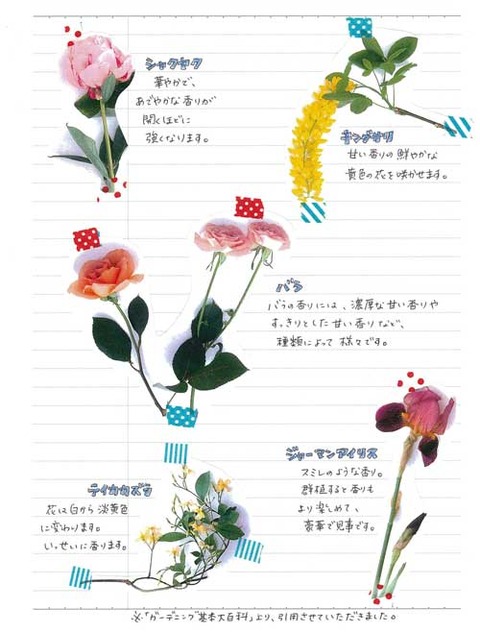 シャクヤク
華やかで、
あざやかな香りが
開くほどに
強くなります。
キングサリ
甘い香りの鮮やかな
黄色の花を咲かせます。
バラ
バラの香りには、濃厚な甘い香りや
すっきりとした甘い香りなど、
種類によって様々です。
ジャーマンアイリス
スミレのような香り。
群植すると香りも
より楽しめて、
豪華で見事です。
テイカカズラ
花は白から淡黄色
に変わります。
いっせいに香ります。
※「ガーデニング基本大百科」より、引用させていただきました。